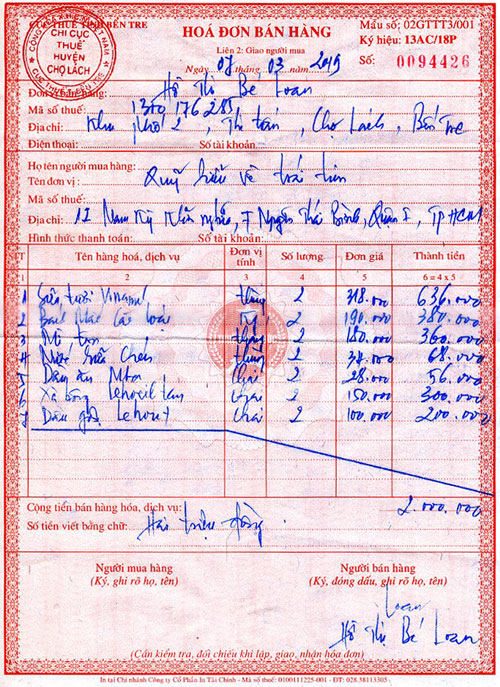 CỤC THUẾ TỈNH BẾN TRE
CHI CỤC THUẾ HUYỆN CHỢ LÁCH
HOÁ ĐƠN BÁN HÀNG
Liên 2: Giao người mua
Ngày 07 tháng 03 năm 2019
Mẫu số: 02GTTT3/001
Ký hiệu: 13AC/18P
Số: 0094426
Đơn vị bán hàng: Hồ Thị Bé Loan
Mã số thuế: 1300176285
Địa chỉ: Khu phố 2, Thị trấn, Chợ Lách, Bến Tre
Điện thoại: Số tài khoản:
Họ tên người mua hàng:
Tên đơn vị: Quỹ hiểu về trái tim
Mã số thuế:
Địa chỉ: Nam Kỳ Khởi Nghĩa, F Nguyễn Thái Bình, Quận I, TpHCM
Hình thức thanh toán: Số tài khoản:
TT Tên hàng hoá, dịch vụ Đơn vị tính Số lượng Đơn giá Thành tiền
1 2 3 4 5 6 = 4 x 5
1 Sữa tươi Vinamil thùng 2 318.000 636.000
2 Bánh các loại 2 190.000 380.000
3 Mì tôm thùng 2 180.000 360.000
4 Nước thùng 2 34.000 68.000
5 Dầu ăn chai 2 28.000 56.000
6 Xà bông chai 2 150.000 300.000
7 Dầu gội chai 2 100.000 200.000
Cộng tiền bán hàng hóa, dịch vụ: 2.000.000
Số tiền viết bằng chữ: Hai triệu đồng.
Người mua hàng Người bán hàng
(Ký, ghi rõ họ, tên) (Ký, đóng dấu, ghi rõ họ, tên)
Loan
Hồ Thị Bé Loan
(Cần kiểm tra, đối chiếu khi lập, giao, nhận hóa đơn)
In tại Chi nhánh Công ty Cổ Phần In Tài Chính - Mã số thuế: 0100111225-001 - ĐT: 028.38113305